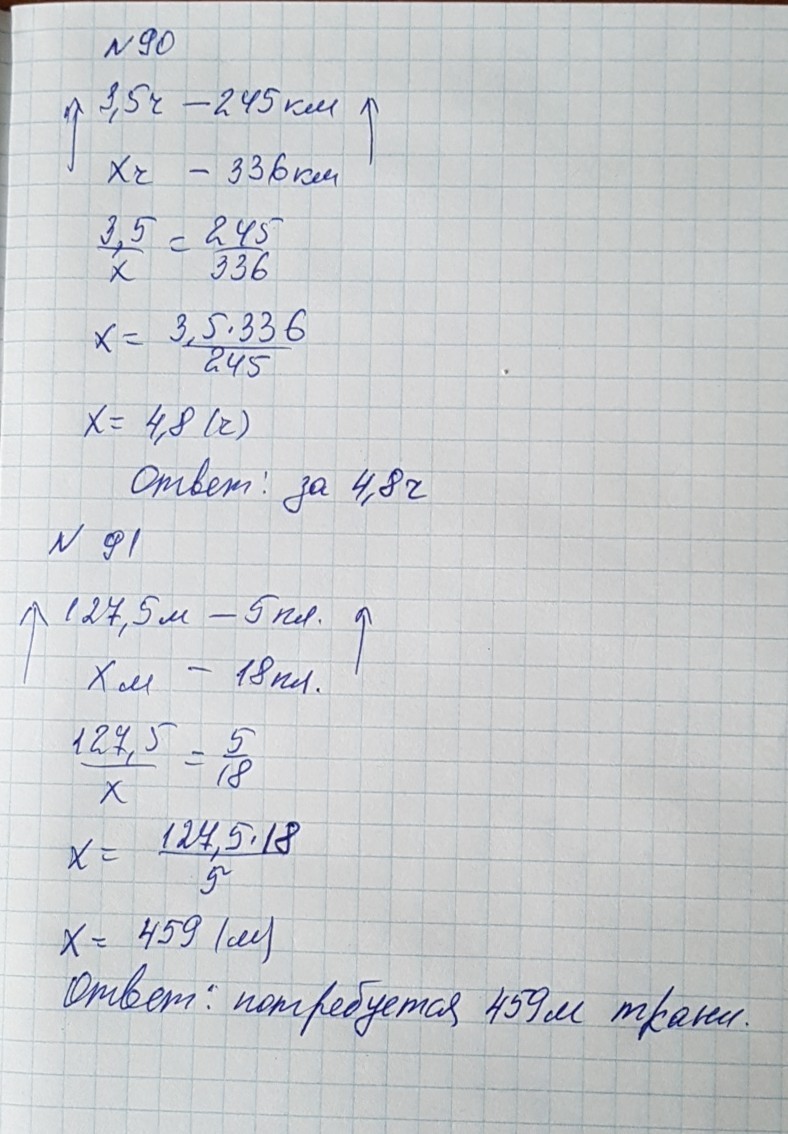 N 90
↑ 3,5ч – 245 км ↑
xч – 336 км
3,5/x = 245/336
x = 3,5·336/245
x = 4,8 (ч)
Ответ: за 4,8 ч
N 91
↑ 127,5 м – 5 пл. ↑
x м – 18 пл.
127,5/x = 5/18
x = 127,5·18/5
x = 459 (м)
Ответ: потребуется 459 м ткани.